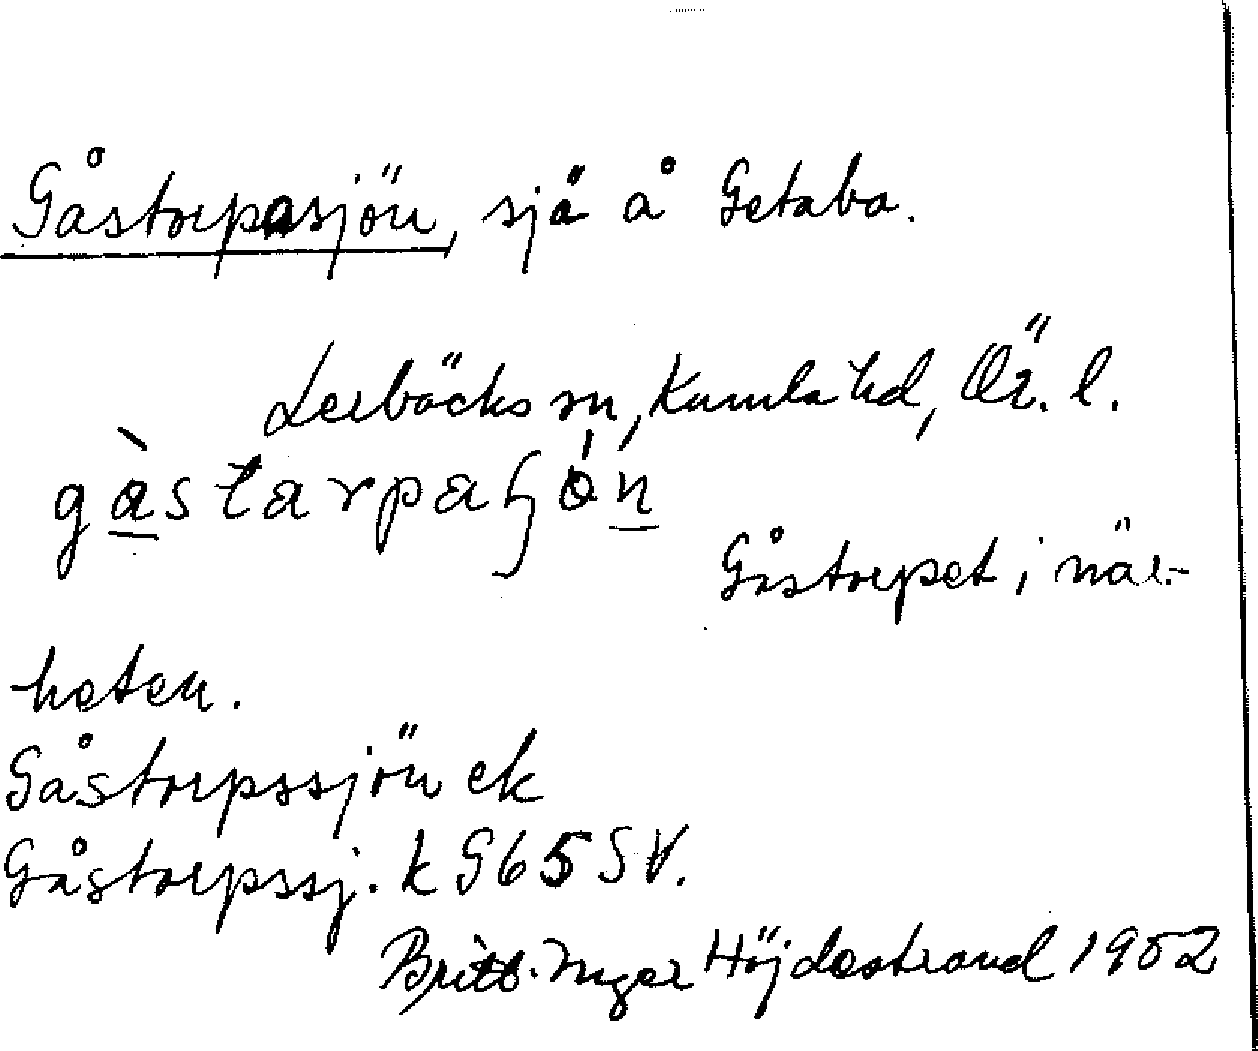 Gåstorpasjön, sjö å Getabo.
Lerbäcks sn, Kumla hd, Ör. l.
Gåstorpet i när-
heten.
Gåstorpssjön ek
Gåstorpssj. k G65 SV.
Britt-Inger Höjdestrand 1952